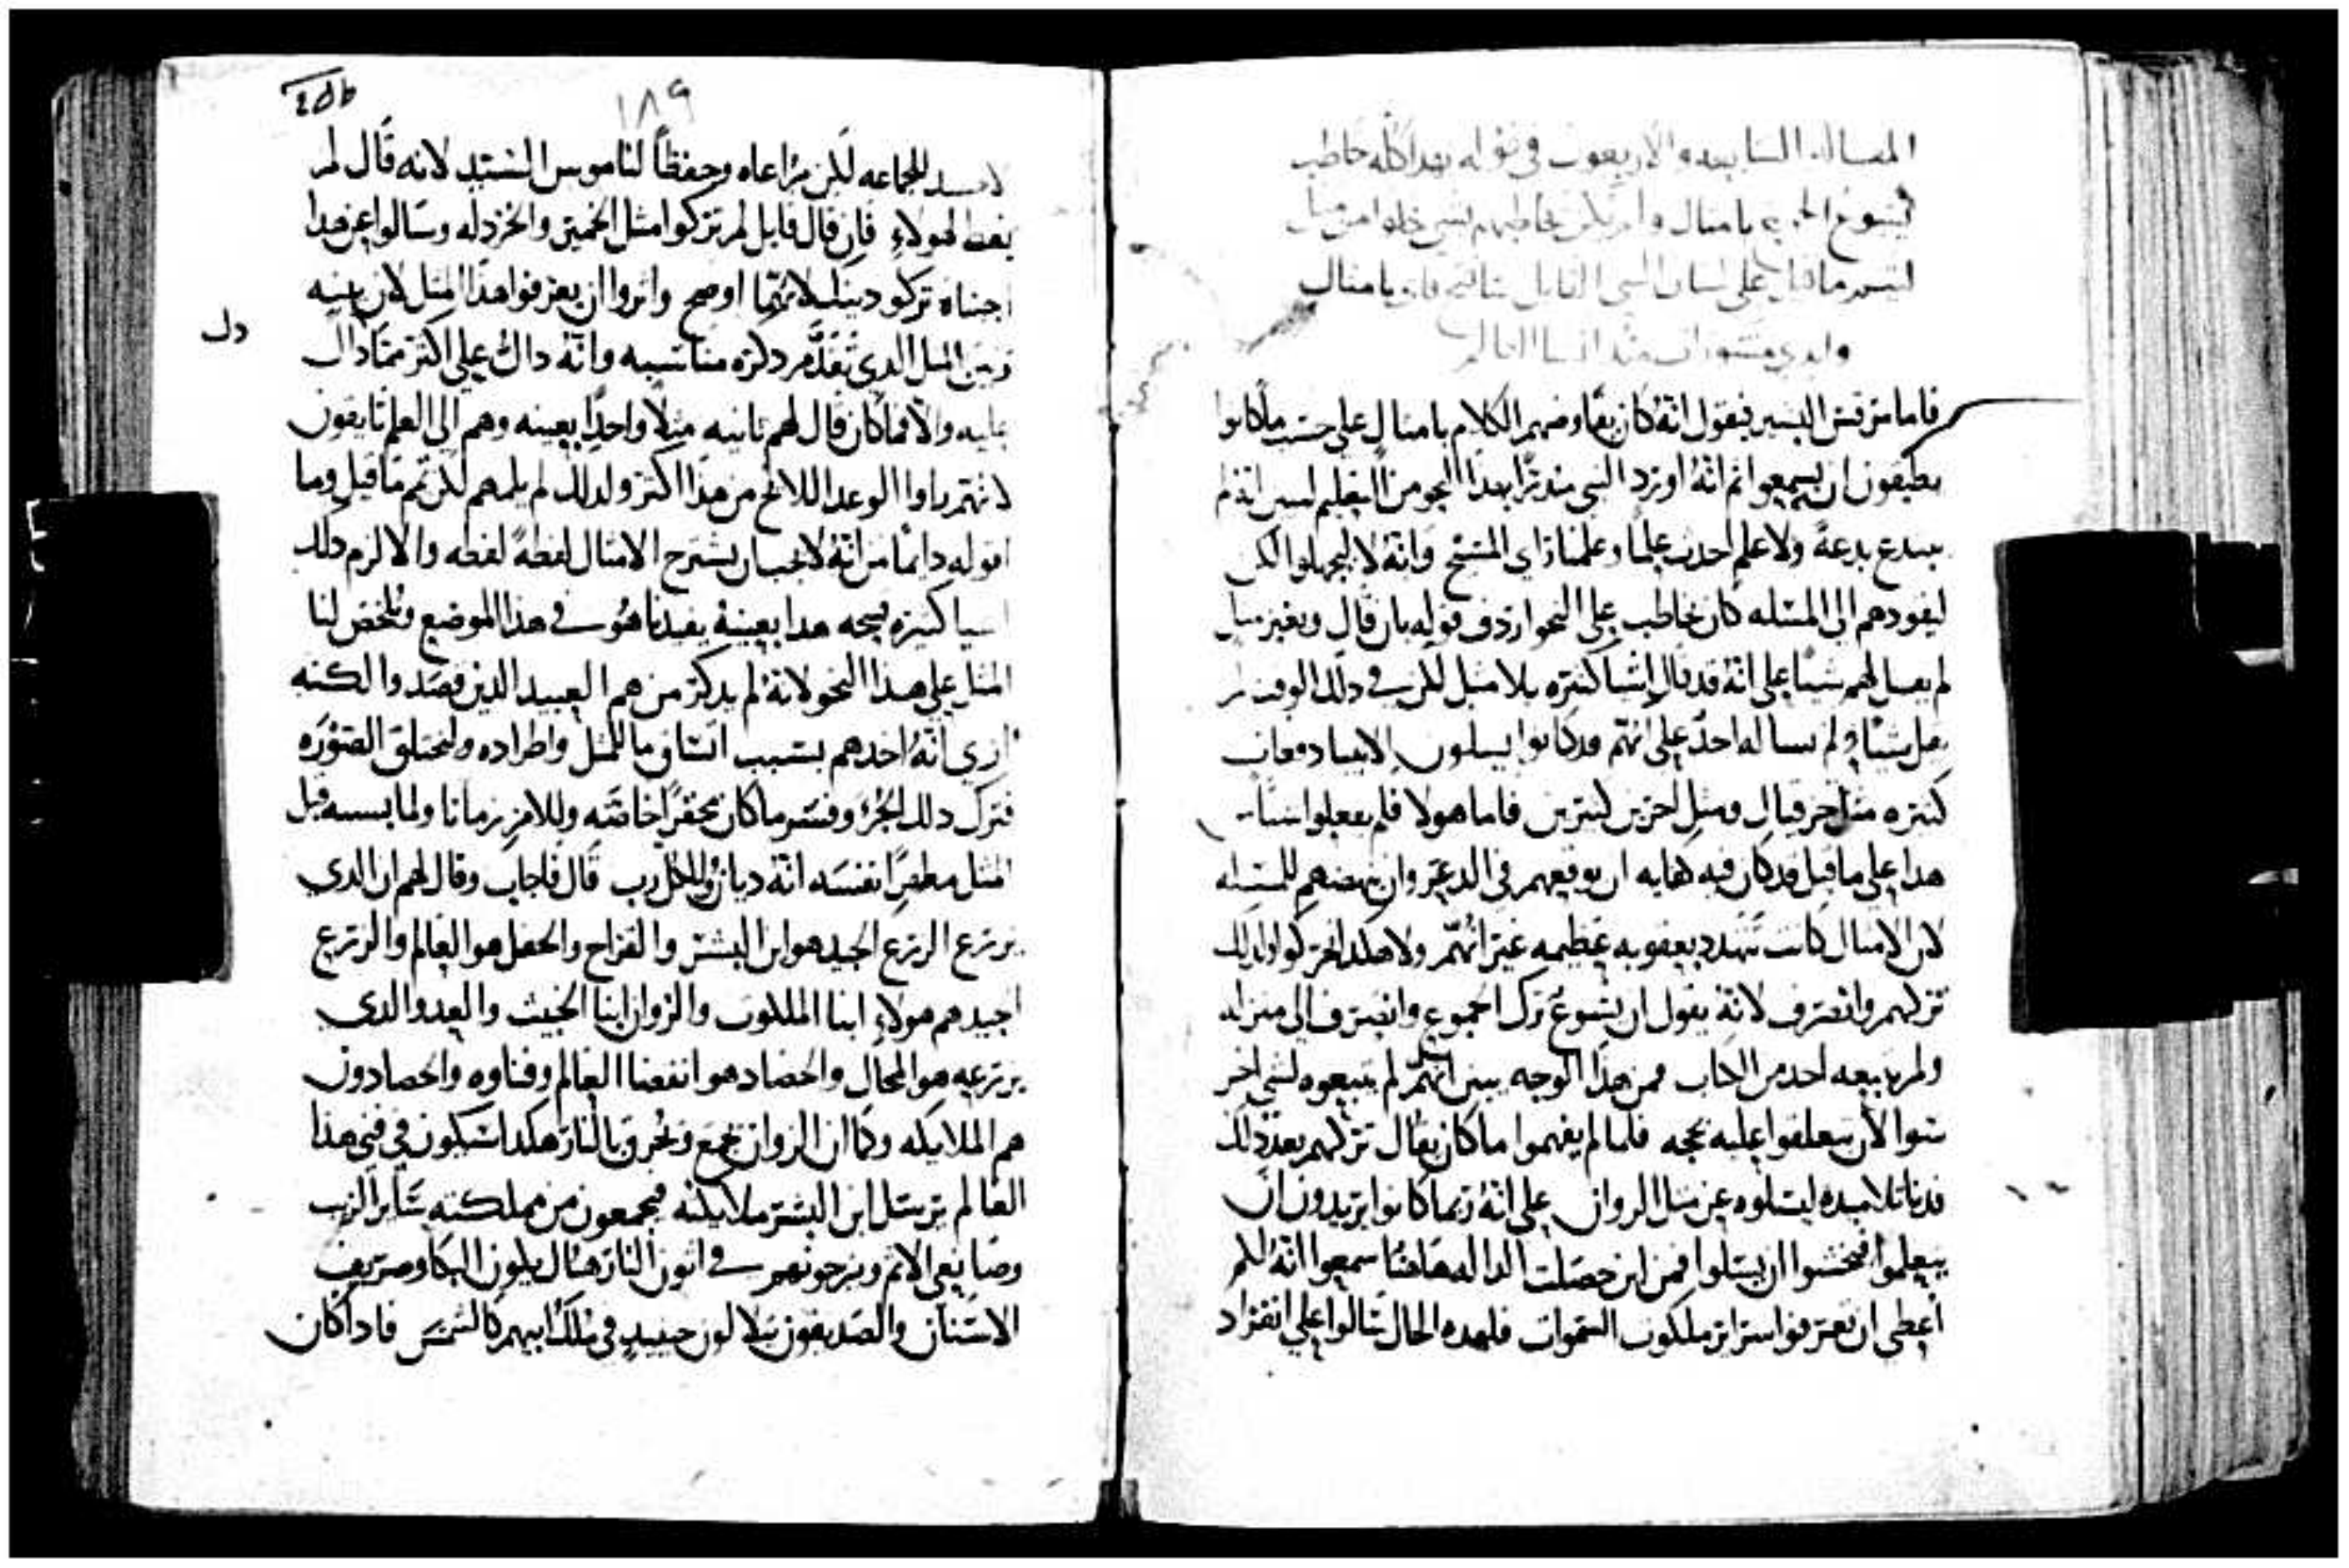 المقاله السابعه والاربعون في قوله هدا كله خاطب
يسوع الجموع بامثال ولم يكن يخاطبهم بشي خلوا من مثل
ليتم ما قيل على لسان النبي القايل سافتح فاي بامثال
وابدي مستورات منذ انشا العالم
فاما مرقس البشير فيقول انه كان يفاوضهم الكلام بامثال على حسب ما كانوا
يطيقون ان يسمعوا ثم انه اورد النبي مندرًا بهدا النحو من التعليم ليبين انه لم
يبتدع بدعةً ولاعلم احدث علمًا وعلمنا راي المسيح وانه لا ليجهلوا لكن
ليقودهم الى المسله كان يخاطب على النحو اردف قوله بان قال وبغير مثل
لم يقل لهم شيئًا على انه قد قال اشيا كثيره بلا مثل لكن في دلك الوقت لم
يقل شيئًا ولم يساله احدٌ على انهم قد كانوا يسلون الانبيا دفعات
كثيره مثل حزقيال ومثل اخرين كثيرين فاما هولا فلم يفعلوا شيئًا
هدا على ما قيل قد كان فيه كفايه ان يوقعهم في الدعر وان ينهضهم للمسله
لان الامثال كانت تتهدد بعقوبه عظيمه غير انهم ولا هكدا تحركوا ولدلك
تركهم وانصرف لانه يقول ان يسوع ترك الجموع وانصرف الى منزله
ولم يتبعه احد من الكتاب فمن هذا الوجه يبين انهم لم يتبعوه لشي اخر
سوا لان يتعلقوا عليه بحجه فلما لم يفهموا ما كان يقال تركهم بعد دلك
فدنا تلاميده ليسلوه عن مثل الزوان على انه ربما كانوا يريدون ان
يتعلموا فيخشوا ان يسلوا فمن اين حصلت لهم الداله هاهنا سمعوا انه لكم
اعطى ان تعرفوا سراير ملكوت السموات فلهده الحال سالوا على انفراد
١٨٩
لا حسد للجماعه لكن مراعاه وحفظًا لناموس السيد لانه قال لم
يعط لهولاءِ فان قال قايل لم تركوا مثل الخمير والخردله وسالوا عن هدا
اجبناه تركو دينك لانهما اوضح واثروا ان يعرفوا هذا المثل لان بينه
وبين المثل الدي تقدم دكره مناسبه وانه دالٌ على اكثر مما دال
دل
عليه والا فما كان قال لهم ثانيه مثلا واحدًا بعينه وهم الى العلم تايقون
لانهم راوا الوعد اللايح من هدا اكثر ولدلك لم يلمهم لكن تمم ما قيل وما
اقوله دايمًا من انه لا يجب ان يشرح الامثال لفظهً لفظه والا لزم دلك
اشيا كثيره سمجه هدا بعينه يفيدناه هو في هذا الموضع ويلخص لنا
المثل على هدا النحو لانه لم يدكر من هم العبيد الدين قصدوا لكنه
ارى انه اخدهم بسبب اتساق ما للمثل واطراده وليختلق الصوره
فترك دلك الجزؤ وفسر ما كان محفزًا خاصته وللامر زمانا ولما بسببه قيل
المثل مظهرًا نفسه انه ديانٌ وللكل رب قال فاجاب وقال لهم ان الدي
يزرع الزرع الجيد هو ابن البشر والقراح والحقل هو العالم والزرع
الجيد هم هولاءِ ابنا الملكوت والزوان ابنا الخبيث والعدو الدي
يزرعه هو المحال والحصاد هو انقضا العالم وفناوه والحصادون
هم الملايكه وكما ان الزوان يجمع ويحرق بالنار هكدا سيكون في فني هذا
العالم يرسل ابن البشر ملايكته فيجمعون من مملكته ساير الريب
وصانعي الاثم ويزجونهم في اتون النار هناك يكون البكا وصريف
الاسنان والصديقون يتلالون حينيدٍ في ملك ابيهم كالشمس فاداكان